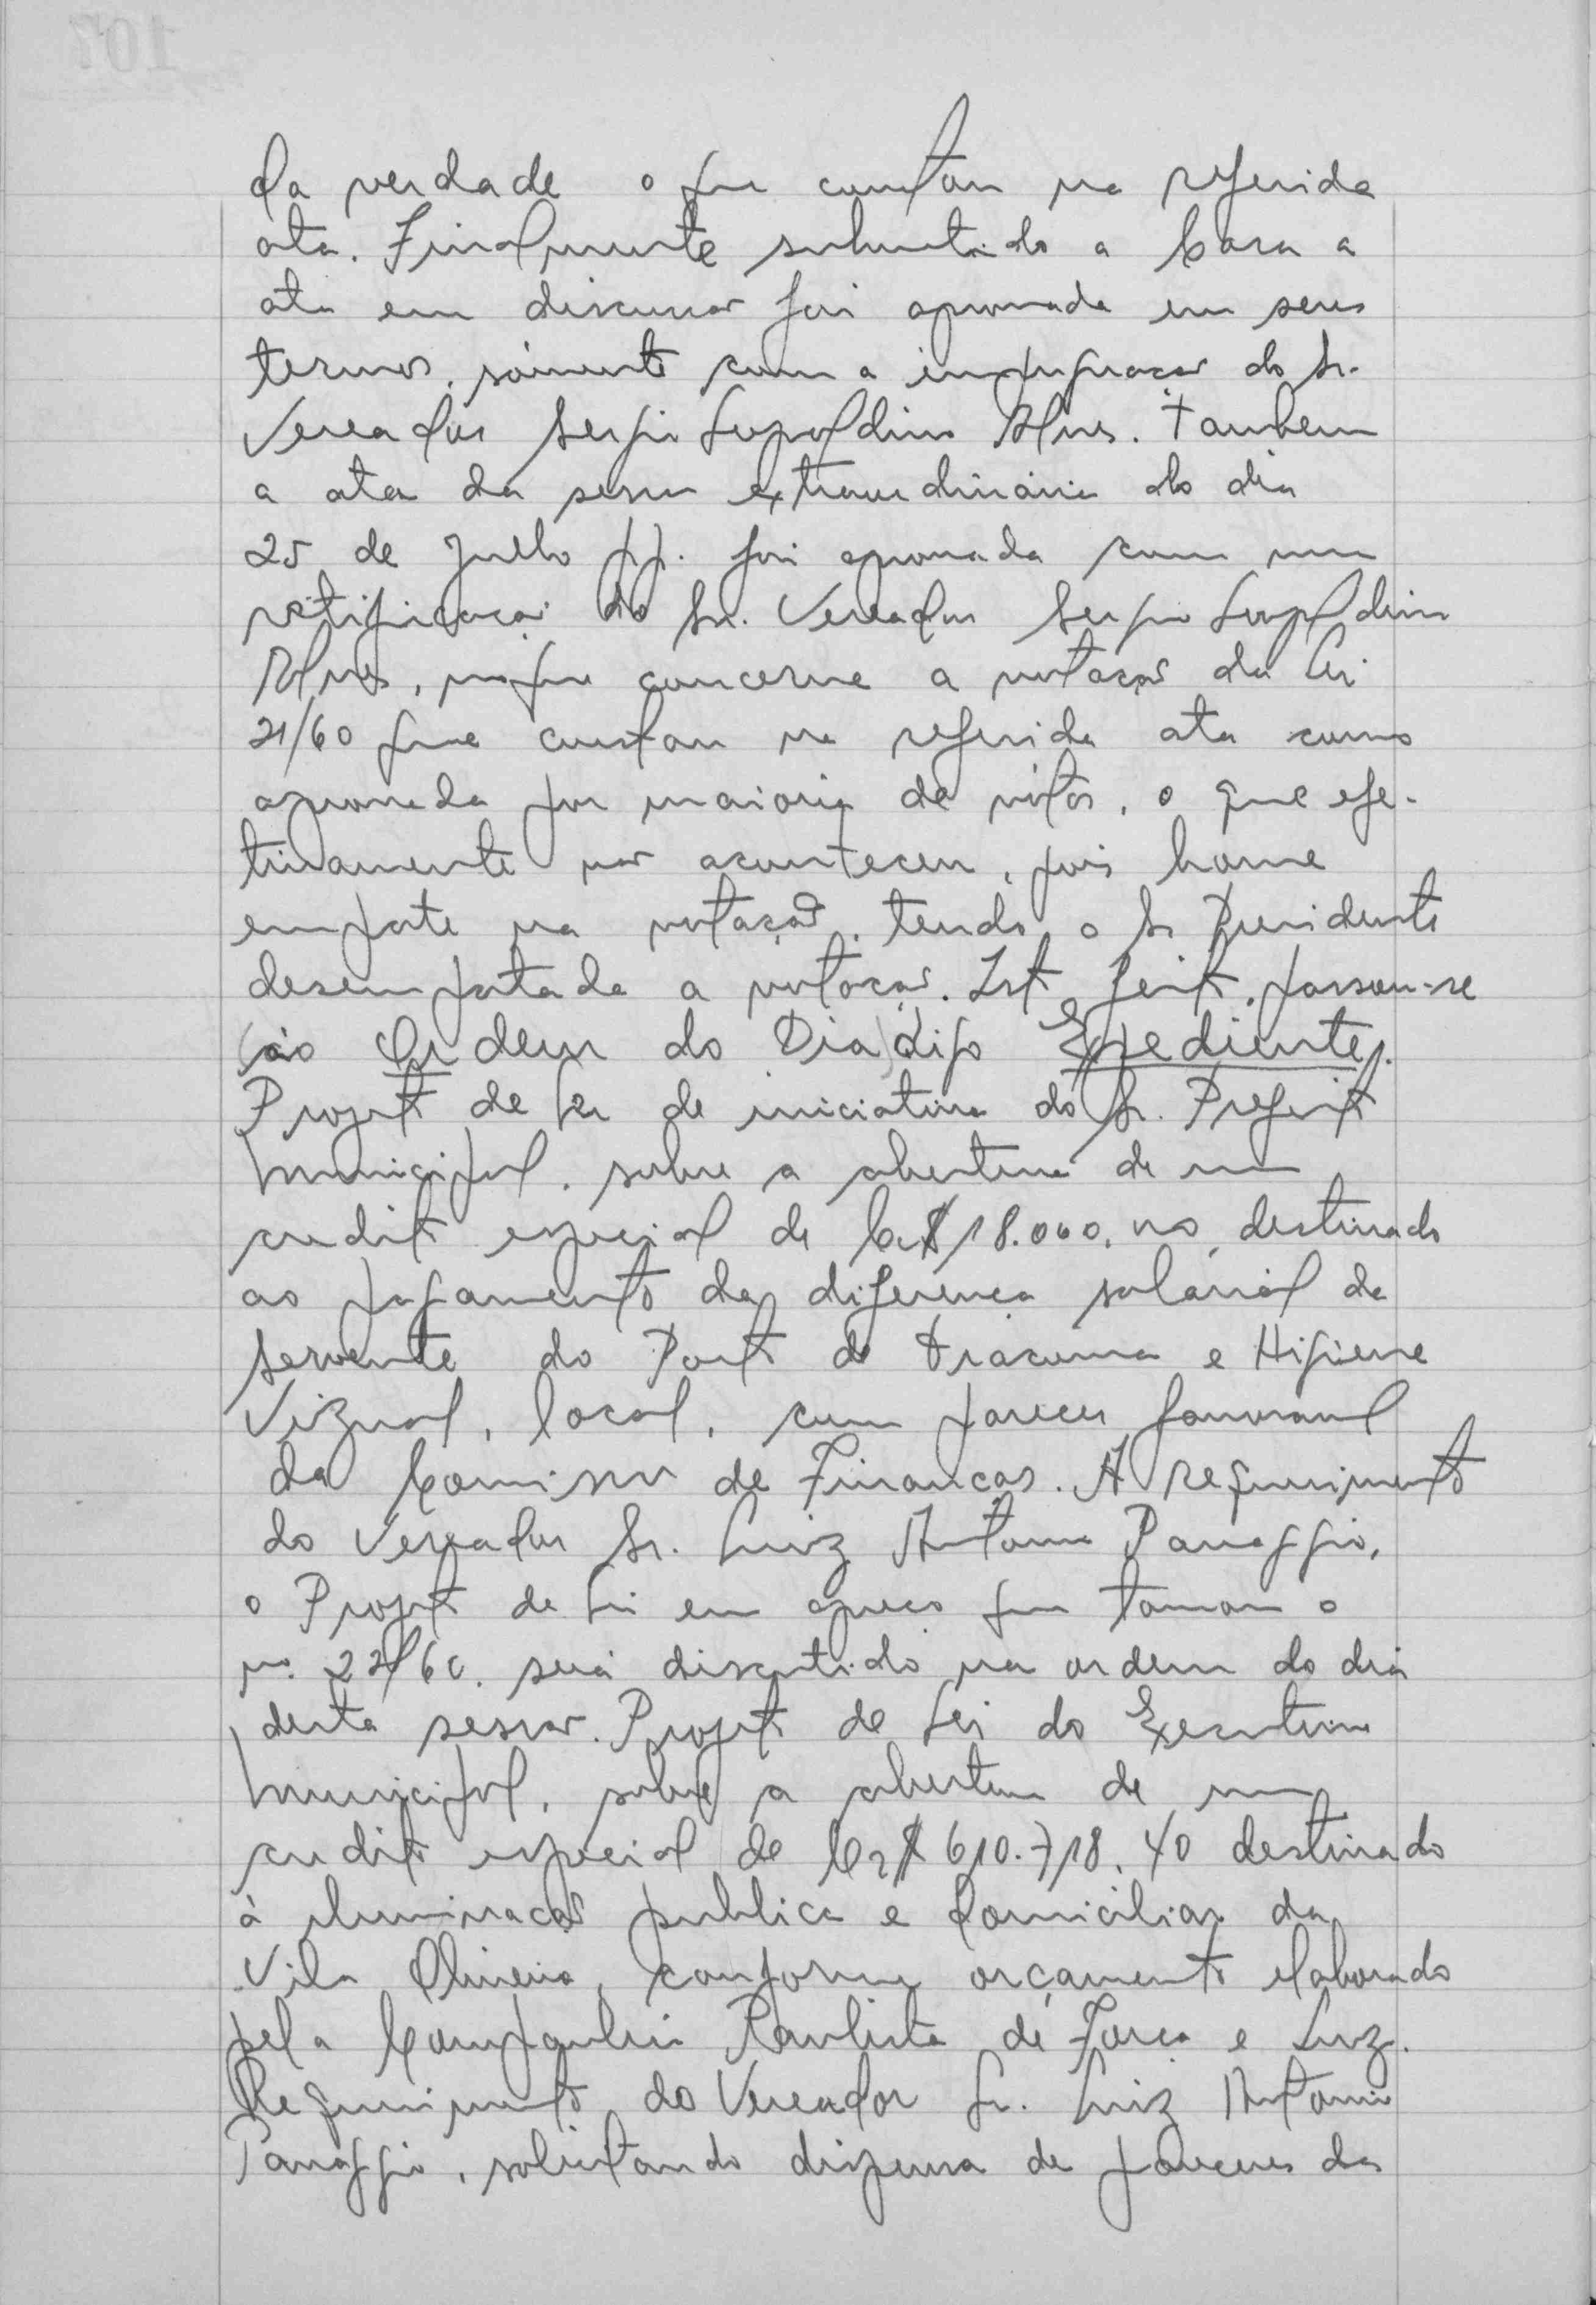 da verdade o que constou na referida
ata. Finalmente submetido a Casa a
ata em discussão foi aprovada em seus
termos, sómente com a impugnação do Sr.
Vereador Sergio Leopoldino Alves. Tambem
a ata da sessão extraordinária do dia
25 de Julho pp. foi aprovada com uma
retificação do Sr. Vereador Sergio Leopoldino
Alves, no que concerne a votação da Lei
21/60 que constou na referida ata como
aprovada por maioria de votos, o que efe-
tivamente não aconteceu, pois houve
empate na votação, tendo o Sr Presidente
desempatado a votação. Isto feito, passou-se
(ao Ordem do Dia) digo Expediente.
Projeto de Lei de iniciativa do Sr. Prefeito
Municipal, sobre a abertura de um
credito especial de Cr$ 18.000,00, destinado
ao pagamento da diferença salárial da
servente do Posto de Tracoma e Higiene
Vizual, local, com parecer favoravel
da Comissão de Finanças. A requerimento
do Vereador Sr. Luiz Antonio Panaggio,
o Projeto de Lei em apreço que tomou o
nº 22/60. será discutido na ordem do dia
desta sessão. Projeto de Lei do Executivo
Municipal, sobre a abertura de um
credito especial de Cr$ 610.718,40 destinado
à iluminação publica e domiciliar da
Vila Oliveira, conforme orçamento elaborado
pela Companhia Paulista de Força e Luz.
Requerimento do Vereador Sr. Luiz Antonio
Panaggio, solicitando dispensa de parecer da